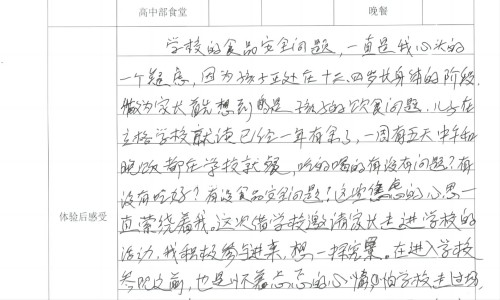 高中部食堂 晚餐
学校的食品安全问题，一直是我心头的
一个疑虑，因为孩子正处在十三四岁长身体的阶段，
做为家长首先想到的是孩子的饮食问题，儿子在
立格学校就读已经一年有余了，一周有五天中午和
晚饭都在学校就餐，吃的喝的有没有问题？有
没有吃好？有没食品安全问题？这些焦虑的心思一
体验后感受
直萦绕着我。这次借学校邀请家长走进学校的
活动，我积极参与进来，想一探究竟。在进入学校
参观之前，也是怀着忐忑的心情，怕学校走过场，